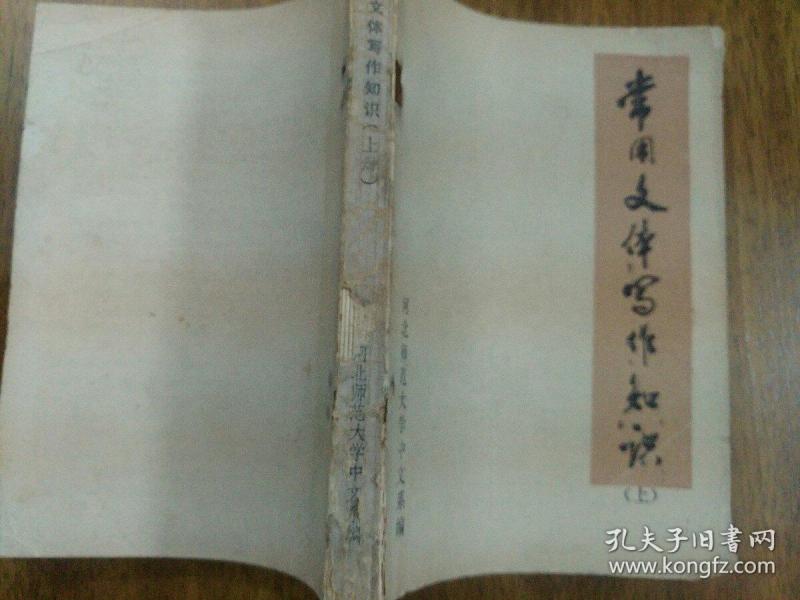 常用文体写作知识
（上）
河北师范大学中文系编
文体写作知识（上册）
北师范大学中文系编
孔夫子旧书网
www.kongfz.com